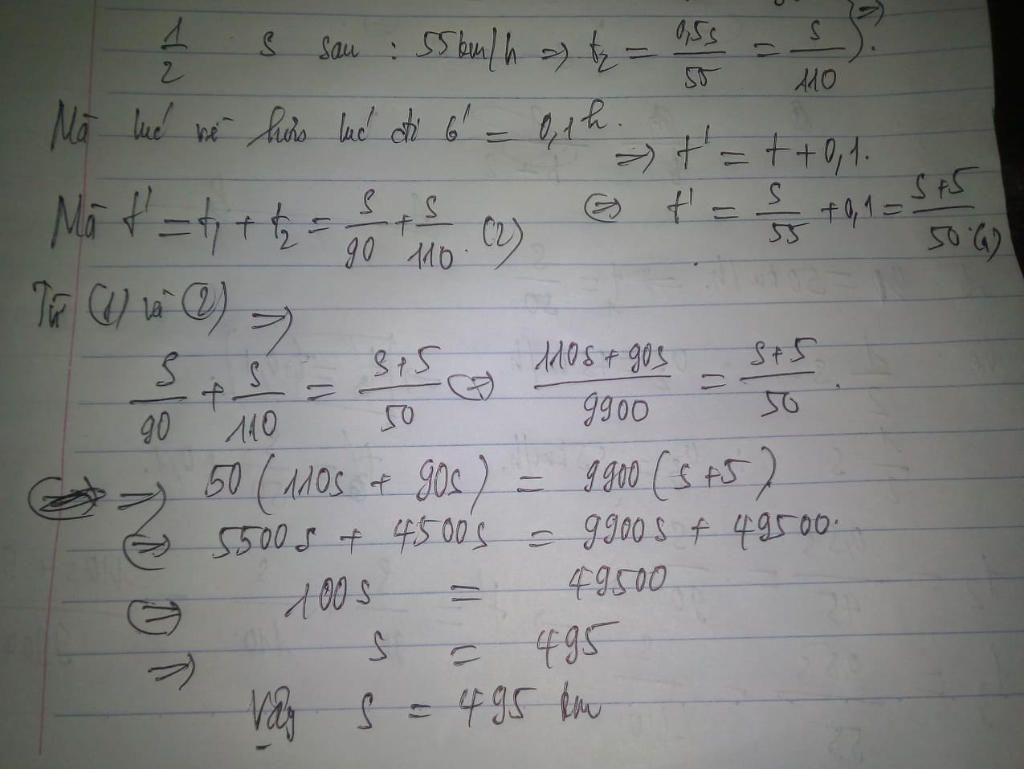 1/2 s sau : 55km/h => t₂ = 0,5s/55 = s/110 ).
Mà lúc về hơn lúc đi 6' = 0,1h.
=> t' = t + 0,1.
Mà t' = t₁ + t₂ = s/90 + s/110. (2)
<=> t' = s/55 + 0,1 = s+5/50 .(1)
Từ (1) và (2) =>
s/90 + s/110 = s+5/50 <=> 110s + 90s/9900 = s+5/50 .
=> 50 (110s + 90s) = 9900 (s+5)
<=> 5500s + 4500s = 9900s + 49500.
<=> 100s = 49500
=> s = 495
Vậy s = 495 km